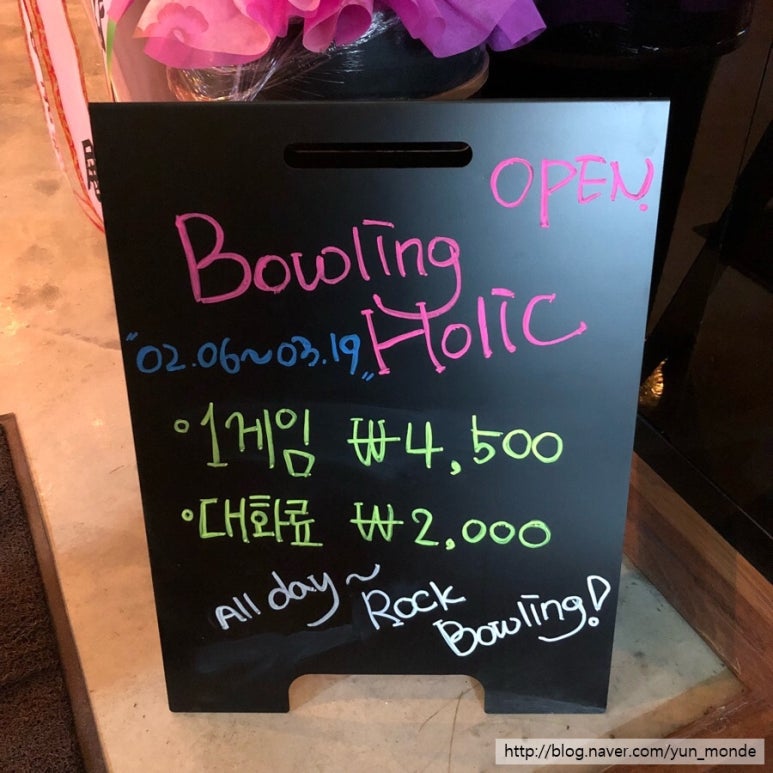 OPEN!
Bowling
Holic
"02.06~03.19"
◦1게임 ₩4,500
◦대화료 ₩2,000
All day~ Rock
Bowling!
http://blog.naver.com/yun_monde